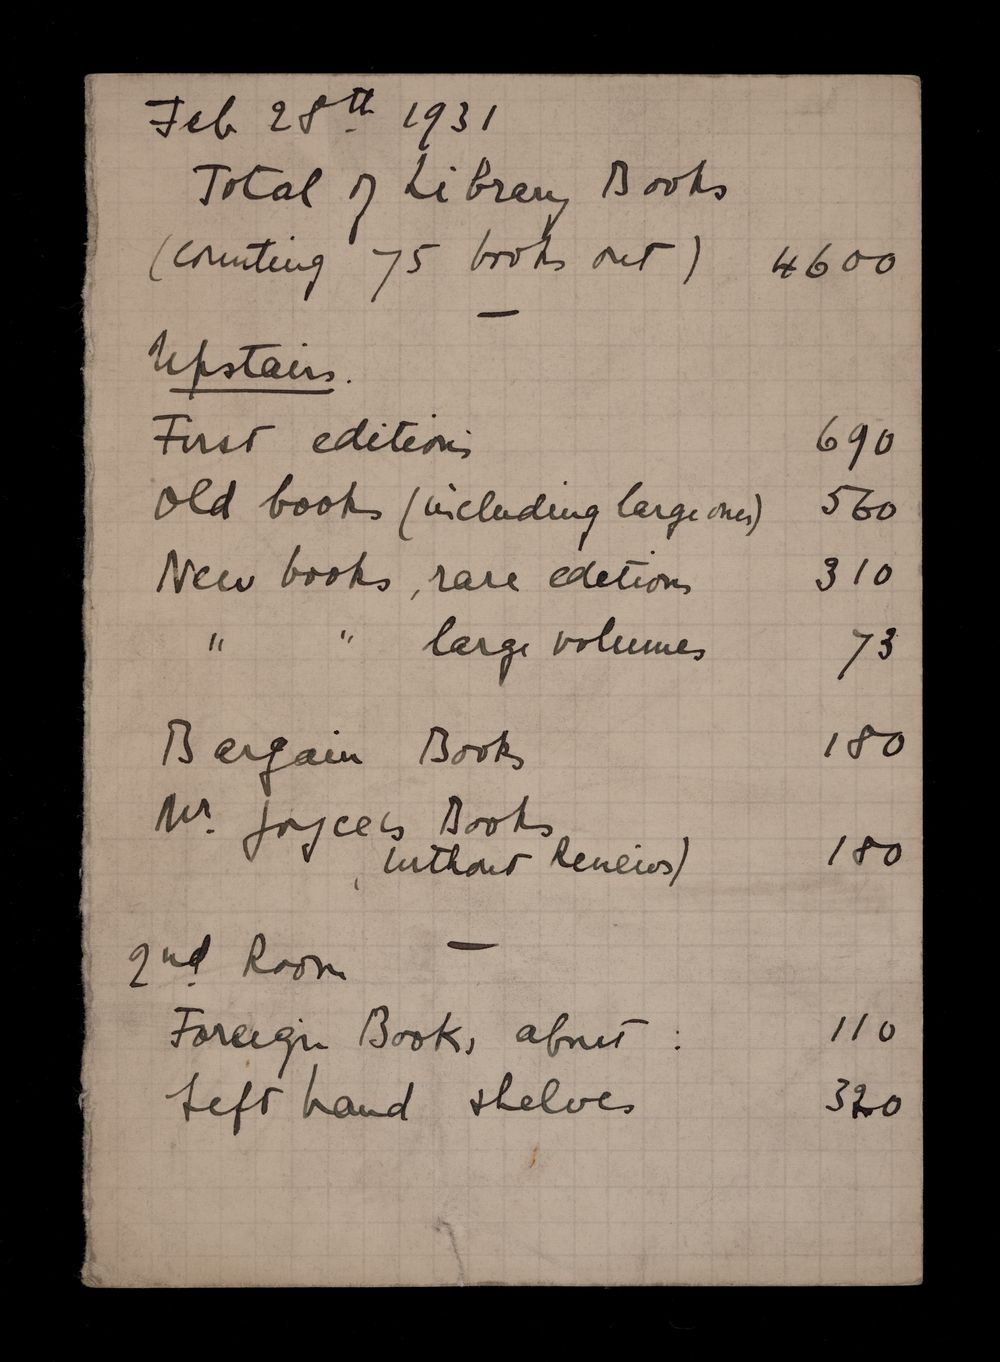 Feb 28th 1931
Total of Library Books
(counting 75 books out) 4600
Upstairs.
First editions 690
Old books (including large ones) 560
New books, rare editions 310
" " large volumes 73
Bargain Books 180
Mr. Joyces Books
(without Reviews) 180
2nd Room
Foreign Books about : 110
Left hand shelves 320